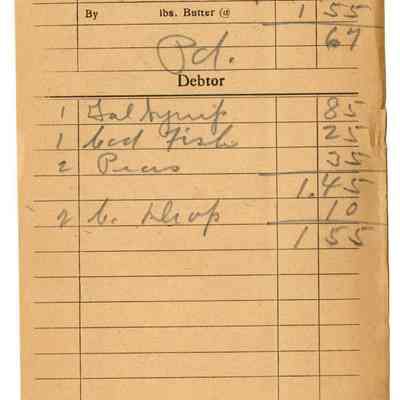 By lbs. Butter @ 1 55
67
Pd.
Debtor
1 Gal Syrup 85
1 Cod Fish 25
2 Peas 35
1.45
2 C. Drop 10
1 55